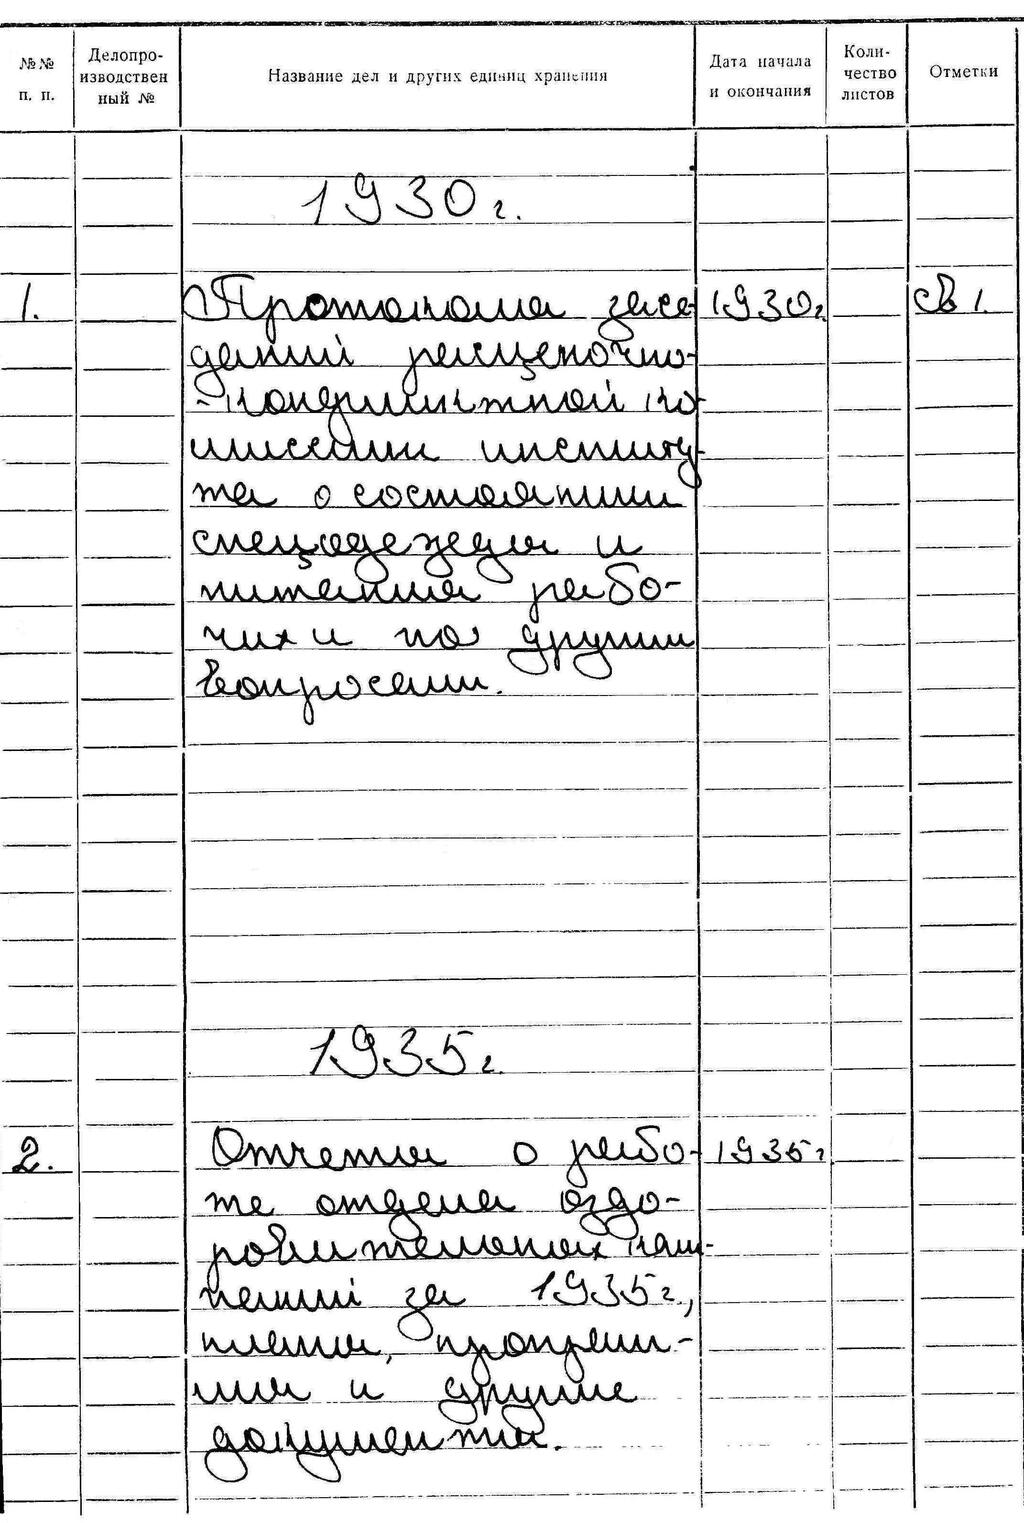 №№ п. п.
Делопро-
изводствен
ный №
Название дел и других единиц хранения
Дата начала
и окончания
Коли-
чество
листов
Отметки
1930 г.
1. Протоколы засе- 1930 г. св 1.
даний расценочно-
-конфликтной ко-
миссии институ-
та о состоянии
спецодежды и
питания рабо-
чих и по другим
вопросам.
1935 г.
2. Отчеты о рабо- 1935 г
те отдела оздо-
ровительных кам-
паний за 1935 г.,
планы, програм-
мы и другие
документы.